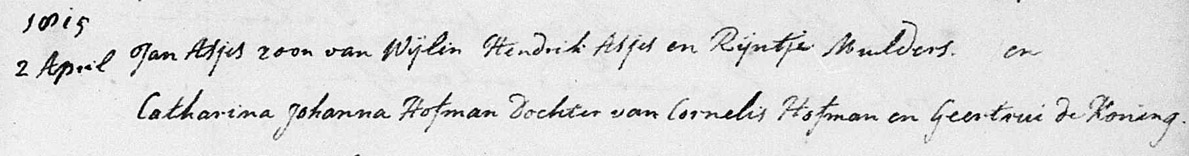 1815
2 April Jan Asjes zoon van Wijlin Hendrik Asjes en Rijntje Mulders. en
Catharina Johanna Hofman Dochter van Cornelis Hofman en Geertrui de Koning.